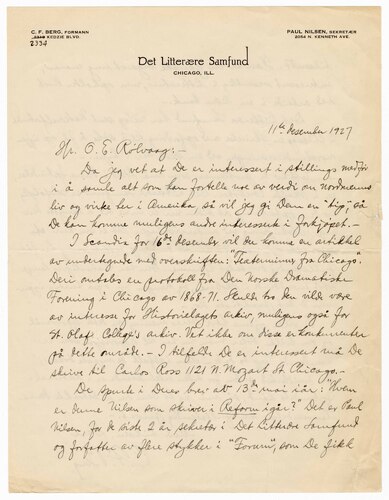 C. F. BERG, FORMANN
2340 KEDZIE BLVD.
2334
PAUL NILSEN, SEKRETÆR
2054 N. KENNETH AVE.
Det Litterære Samfund
CHICAGO, ILL.
11te desember 1927
Hr. O. E. Rölvaag:
Da jeg vet at De er interessert i stillings medför
i å samle alt som kan fortelle noe av verdi om nordmenns
liv og virke her i Amerika, så vil jeg gi Dem en "tip", så
De kan komme muligens andre interesserte i forkjöpet. -
I Scandia for 16de desember vil der komme en artikkel
av undertegnede med overskriften: "Teaterminner fra Chicago".
Deri omtales en protokoll fra Den Norske Dramatiske
Forening i Chicago av 1868-71. Skulde tro den vilde være
av interesse for Historielagets arkiv, muligens også for
St. Olaf College's arkiv. Vet ikke om disse er konkurrenter
på dette område. - I tilfelde De er interessert må De
skrive til Carlos Ross 1121 N. Mozart St. Chicago. -
De spurte i Deres brev av 13de mai iår: "Hvem
er denne Nilsen som skriver i Reform igår?" Det er Paul
Nilsen, for de siste 2 år sekretær i Det Litterære Samfund
og forfatter av flere stykker i "Forum", som De fikk